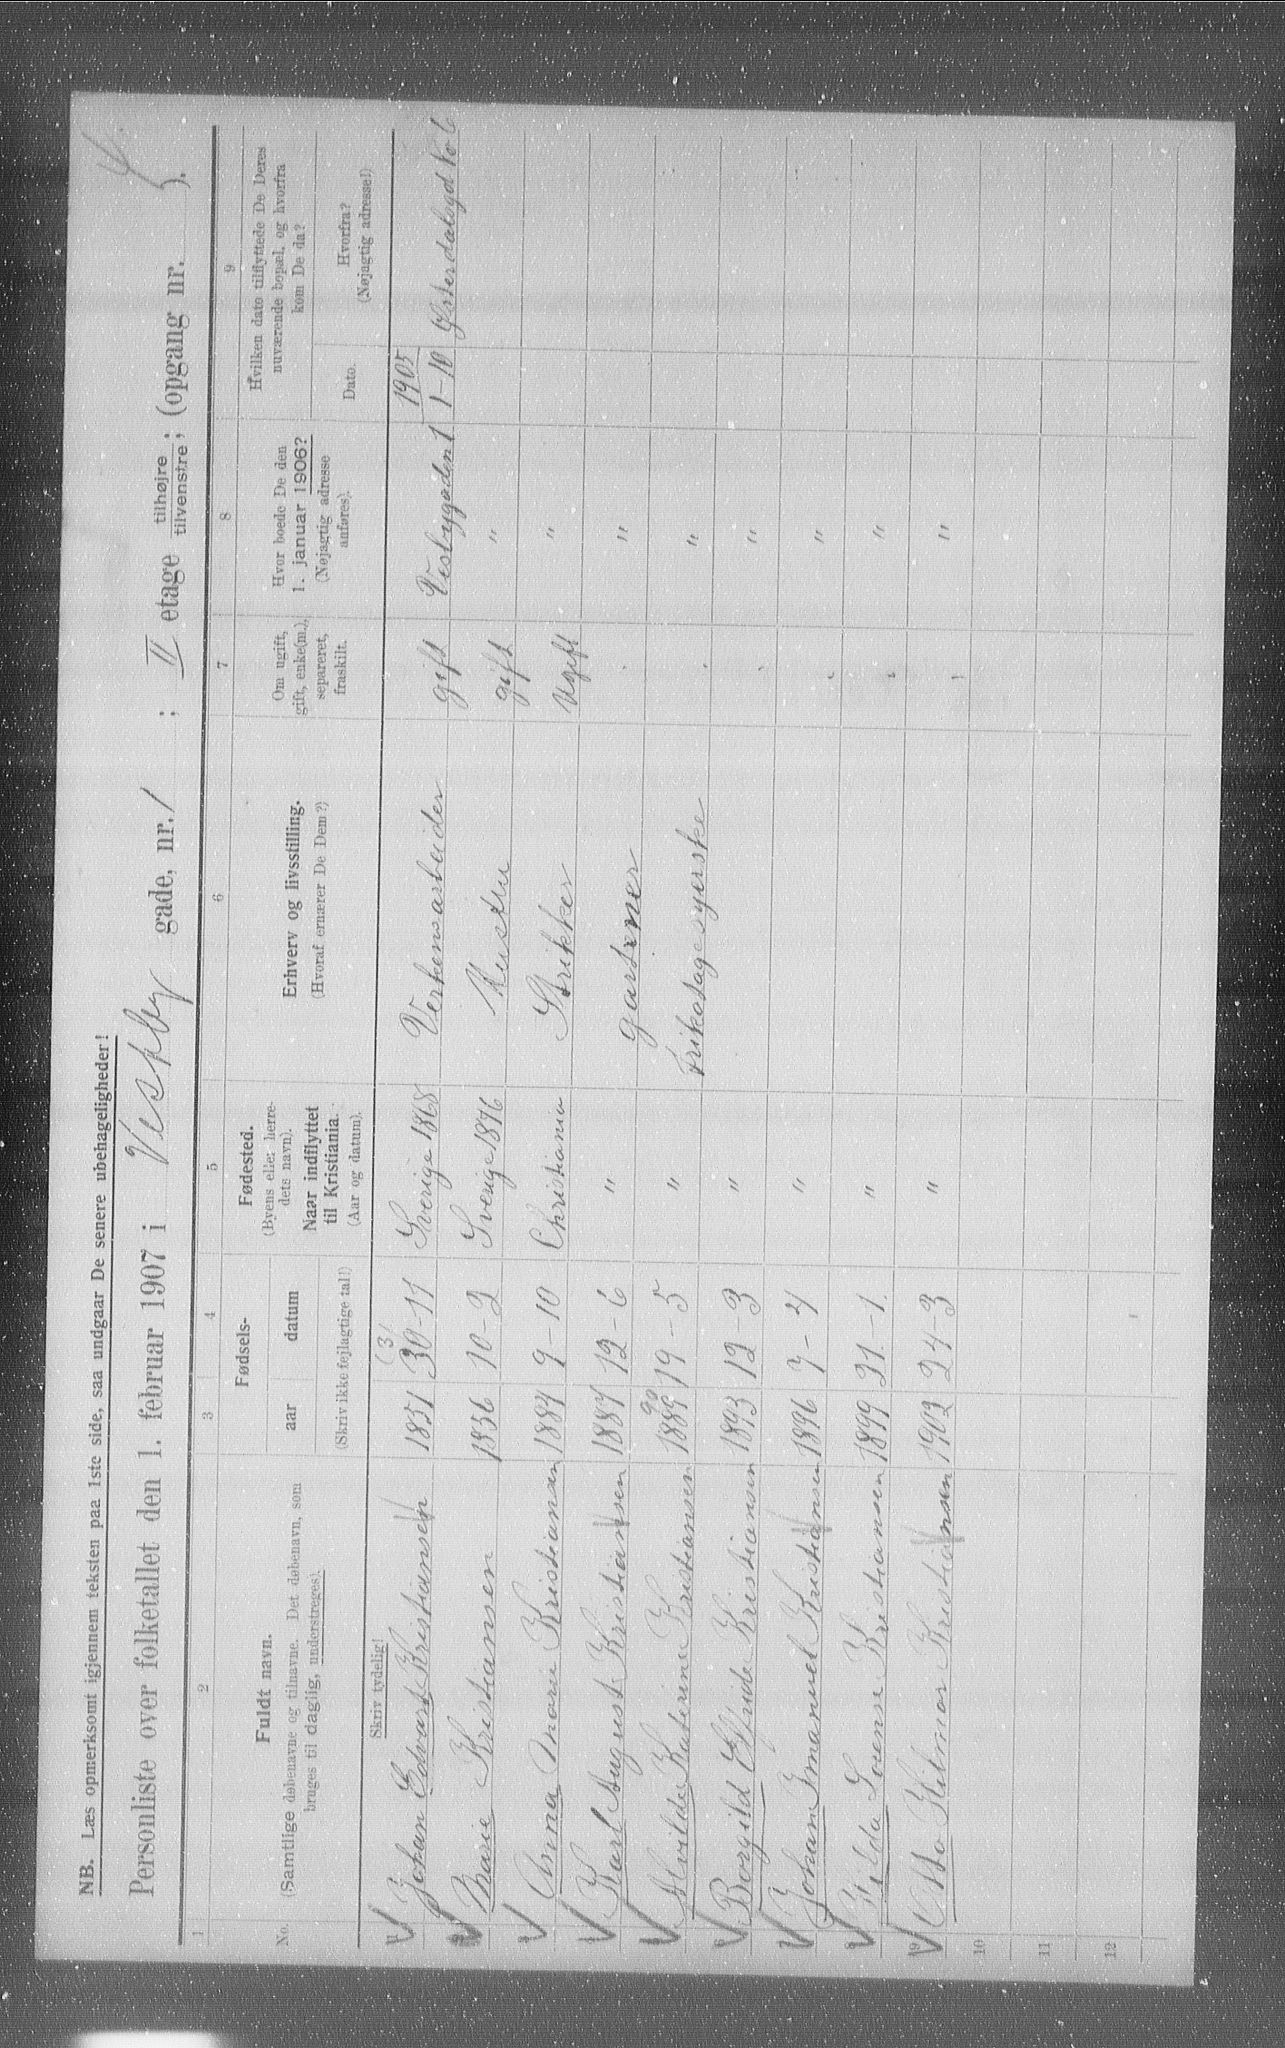 NB. Læs opmerksomt igjennem teksten paa 1ste side, saa undgaar De senere ubehageligheder!
Personliste over folketallet den 1. februar 1907 i Vestby gade, nr. 1 ; II etage tilhøjre tilvenstre; (opgang nr. ).
1 2 3 4 5 6 7 8 9
No. Fuldt navn. (Samtlige døbenavne og tilnavne. Det døbenavn, som bruges til daglig, understreges).
Fødsels- aar datum
(Skriv ikke fejlagtige tal!)
Fødested. (Byens eller herredets navn). Naar indflyttet til Kristiania. (Aar og datum).
Erhverv og livsstilling. (Hvoraf ernærer De Dem?)
Om ugift, gift, enke(m.), separeret, fraskilt.
Hvor boede De den 1. januar 1906? (Nøjagtig adresse anføres).
Hvilken dato tilflyttede De Deres nuværende bopæl, og hvorfra kom De da?
Dato. Hvorfra? (Nøjagtig adresse!)
Skriv tydelig!
Johan Edvart Kristiansen 1851 30-11 Sverige 1868 Verkensarbeider gift Vesbygaden 1 1905 1-10 Østerdalsgd No 6
Marie Kristiansen 1856 10-2 Sverige 1876 Hustru gift "
Anna Marie Kristiansen 1884 9-10 Christiania Strikker Ugift "
Karl August Kristiansen 1887 12-6 " gartner "
Alvilde Katrine Kristiansen 1889 90 19-5 " Trikotagesyerske "
Borgild Elfride Kristiansen 1893 12-3 " "
Johan Imanuel Kristiansen 1896 7-4 " "
Hilda Lovense Kristiansen 1899 21-1. " "
9 Otto Hilmar Kristiansen 1902 24-3 " "
10
11
12